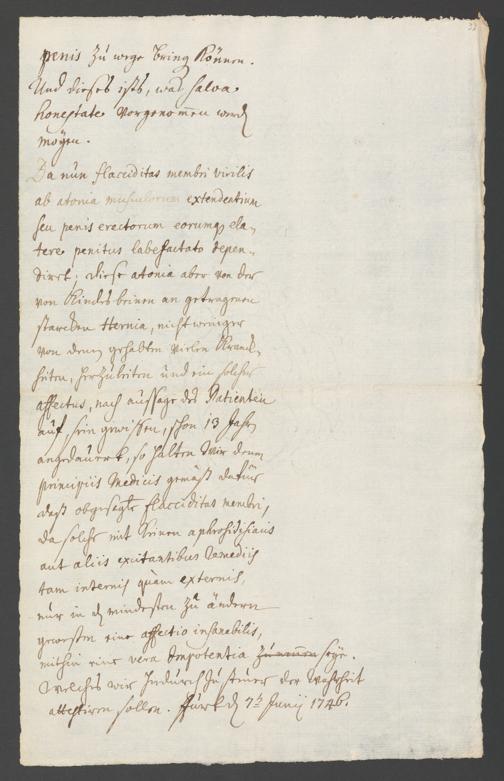 penis zu wege bring können.
Und dieses ists, was salva
honestate vorgenommen werden
mögen.
Da nun flacciditas membri virilis
ab atonia musculorum extendentium
seu penis erectorum eorumq ela-
tere penitus labefactato depen-
diret; diese atonia aber von der
von Kindesbeinen an getragenen
starcken Hernia, nicht weniger
von denen gehabten vielen Kranck-
heiten, herzuleiten und ein solcher
affectus, nach aussage des Patienten
auf sein gewissen, schon 13 Jahr
angedauert, so halten wir denen
principiis Medicis gemäß dafür
daß obgesagte flacciditas membri,
da solche mit keinen aphrodisiacis
aut aliis excitantibus remediis
tam internis quàm externis,
nur in dem mindesten zu ändern
gewessen eine affectio insanabilis,
mithin eine vera Impotentia seye.
Welches wir hiedurch zu steuer der Wahrheit
attestiren sollen. Fürt d 7th Junij 1746.